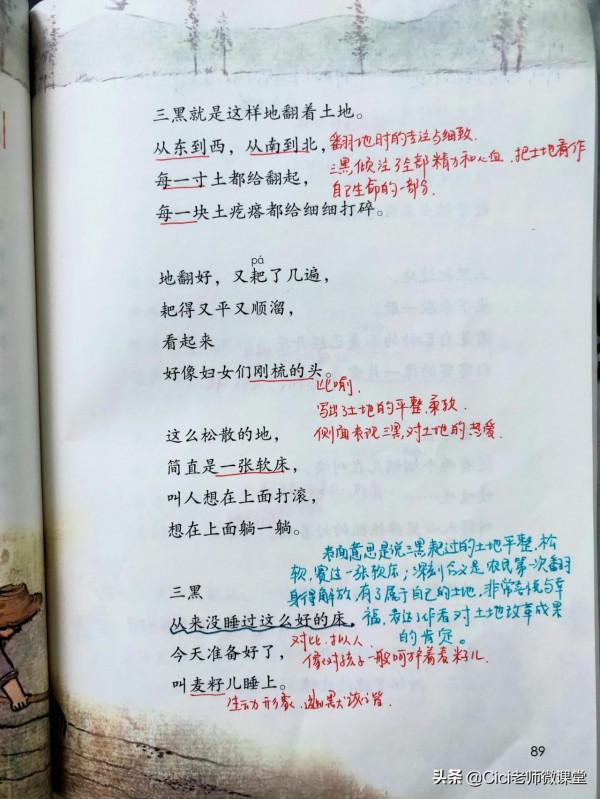 三黑就是这样地翻着土地。
从东到西，从南到北，翻地时的专注与细致.
三黑倾注了全部精力和心血，把土地看作
每一寸土都给翻起，自己生命的一部分.
每一块土疙瘩都给细细打碎。
pá
地翻好，又耙了几遍，
耙得又平又顺溜，
看起来
好像妇女们刚梳的头。
比喻
写出了土地的平整柔软
侧面表现三黑对土地的热爱
这么松散的地，
简直是一张软床，
叫人想在上面打滚，
想在上面躺一躺。
表面意思是说三黑耙过的土地平整、松
软，赛过一张软床；深刻含义是农民第一次翻
身得解放，有了属于自己的土地，非常喜悦与幸
福，表达了作者对土地改革成果
的肯定。
三黑
从来没睡过这么好的床，
对比、拟人
今天准备好了，像对孩子一般呵护着麦籽儿
叫麦籽儿睡上。
生动形象、幽默诙谐
89
头条 @Cici老师微课堂